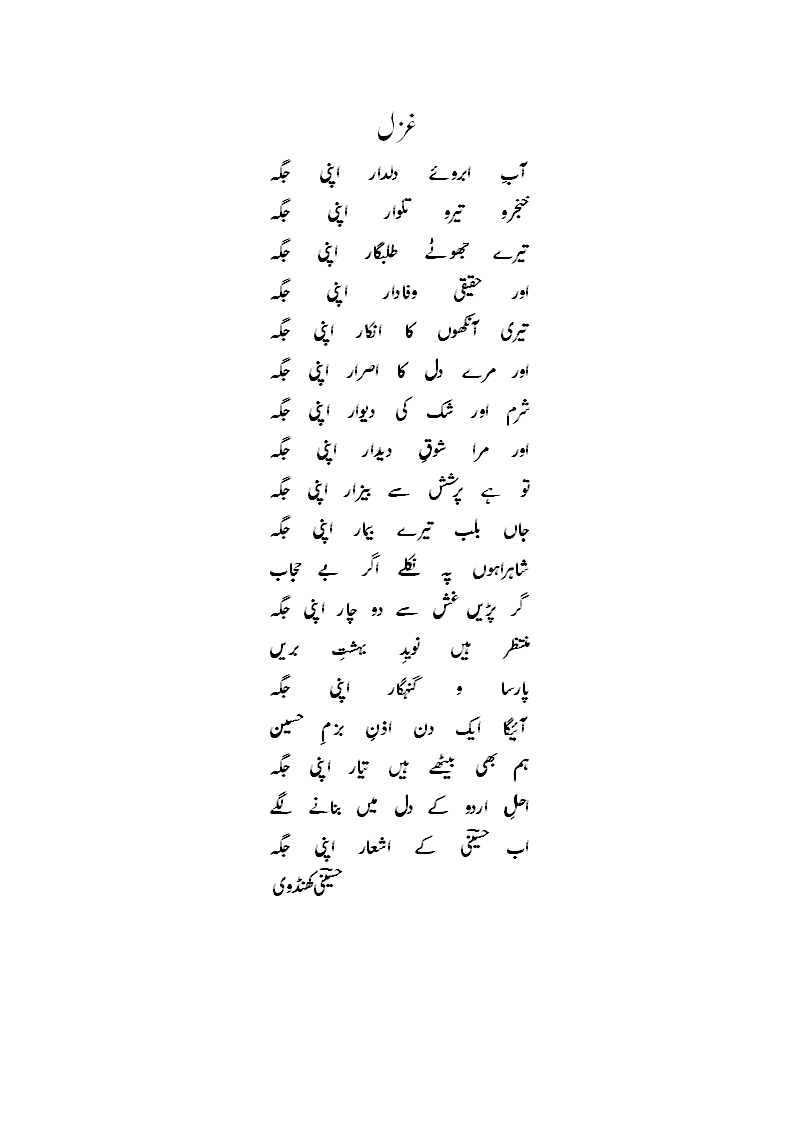 غزل
آبِ ابروئے دلدار اپنی جگہ
خنجرو تیرو تلوار اپنی جگہ
تیرے جھوٹے طلبگار اپنی جگہ
اور حقیقی وفادار اپنی جگہ
تیری آنکھوں کا انکار اپنی جگہ
اور مرے دل کا اصرار اپنی جگہ
شرم اور شک کی دیوار اپنی جگہ
اور مرا شوقِ دیدار اپنی جگہ
تو ہے پرشش سے بیزار اپنی جگہ
جاں بلب تیرے بیمار اپنی جگہ
شاہراہوں پہ نکلے اگر بے حجاب
گر پڑیں غش سے دو چار اپنی جگہ
منتظر ہیں نویدِ بہشتِ بریں
پارسا و گنہگار اپنی جگہ
آئیگا ایک دن اذنِ بزمِ حسین
ہم بھی بیٹھے ہیں تیار اپنی جگہ
احلِ اردو کے دل میں بنانے لگے
اب حسینؔی کے اشعار اپنی جگہ
حسینؔی کھنڈوی